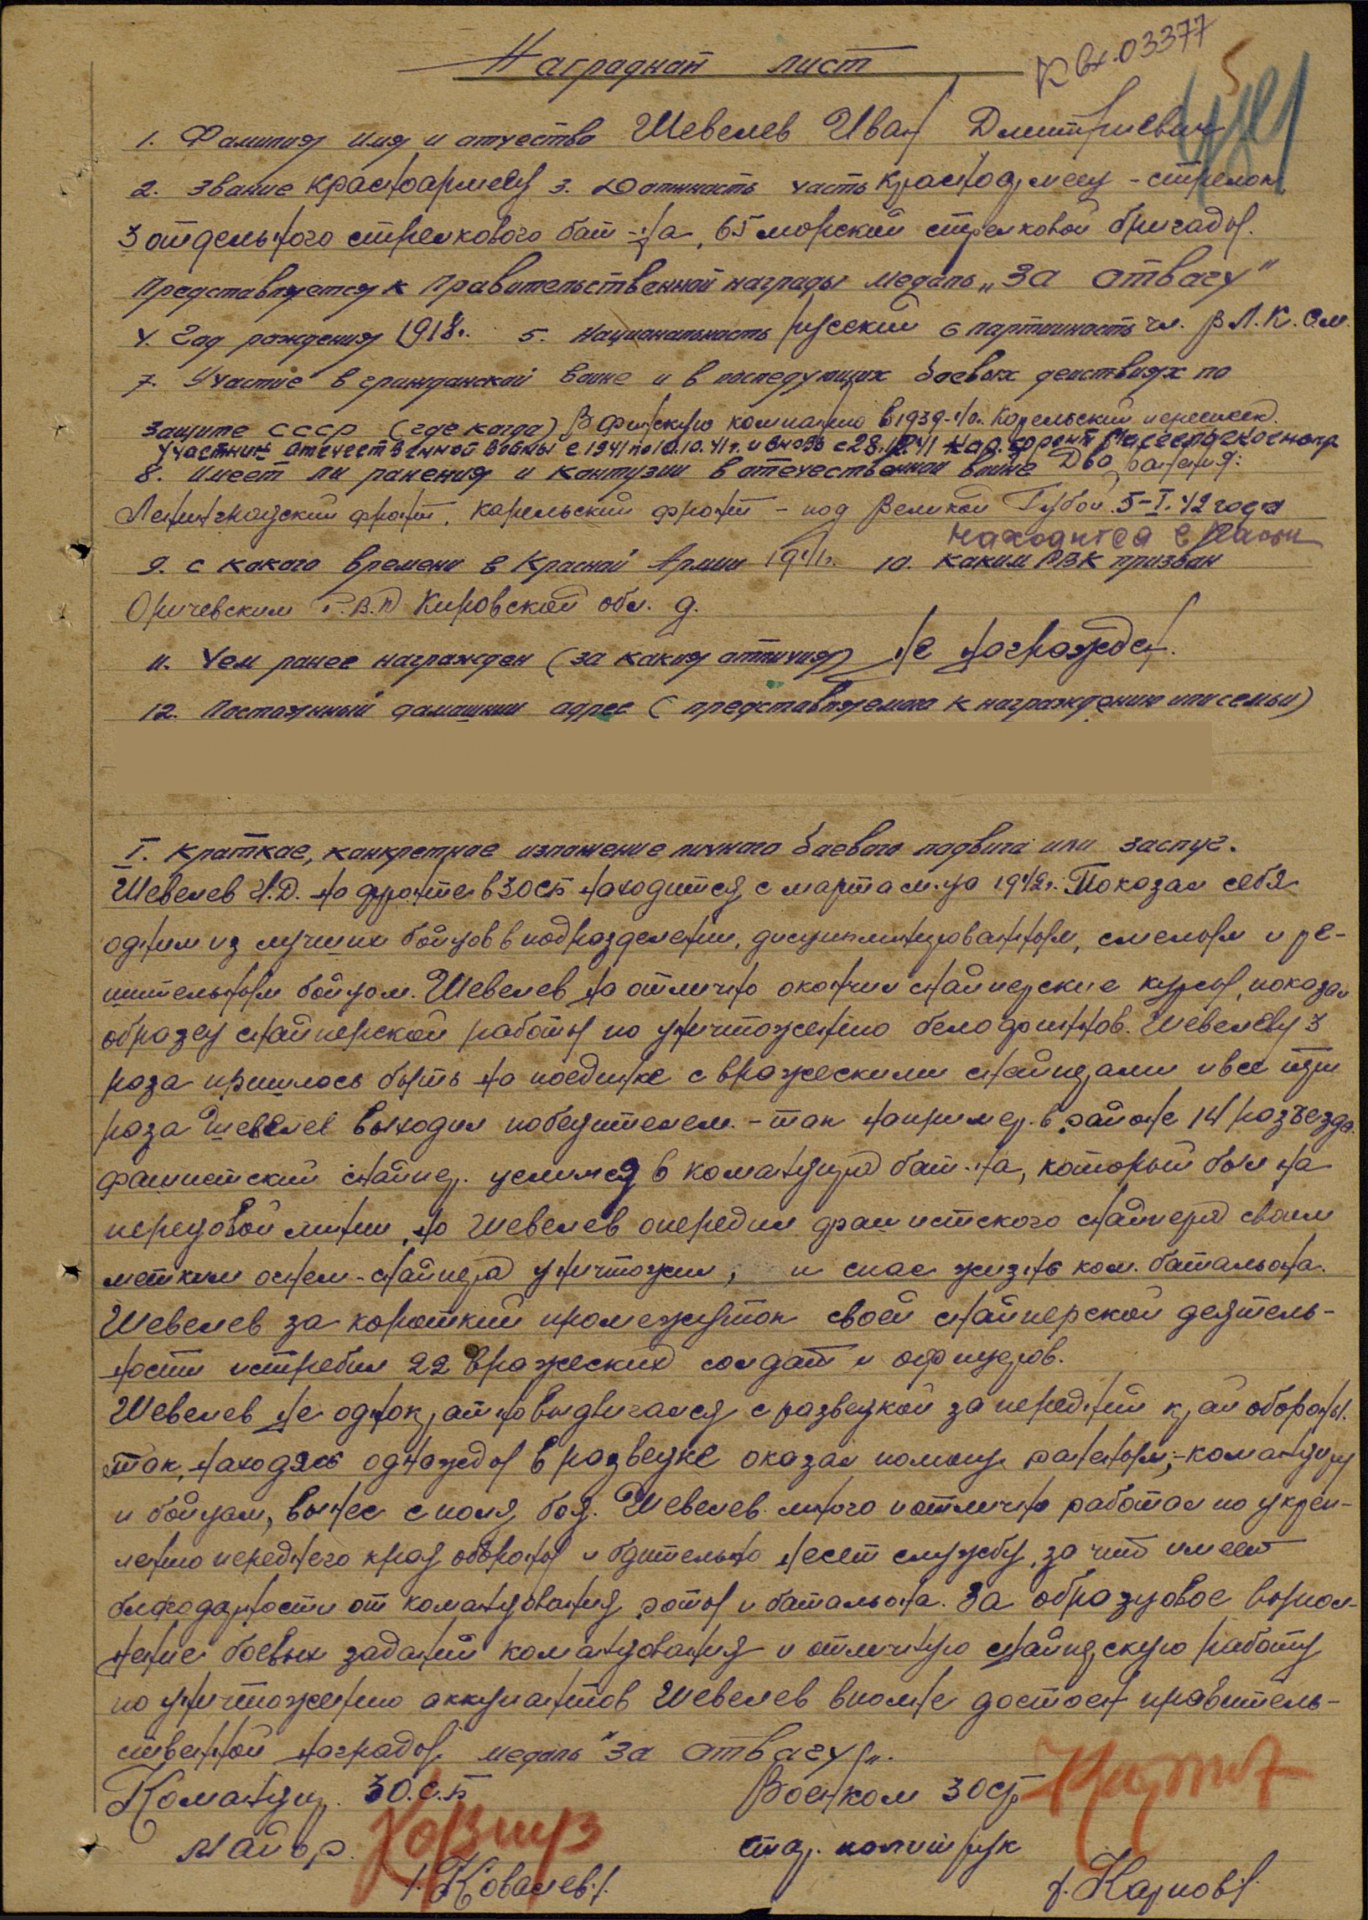 Наградной лист
К вх.03377
5
1. Фамилия Имя и отчество Шевелев Иван Дмитриевич
2. Звание красноармеец 3. Должность часть красноармеец - стрелок
3 отдельного стрелкового бат-на, 65 морской стрелковой бригады.
Представляется к правительственной награды медаль „За отвагу"
4. Год рождения 1918г. 5. Национальность русский 6 партийность чл. ВЛ.К.С.М.
7. Участие в гражданской войне и в последующих боевых действиях по
защите СССР (где когда) В финскую компанию в 1939-
участник отечественной войны с 1941 по 10.10.41г. и вновь с 28.
8. Имеет ли ранения и контузии в отечественной войне Два ранения:
Ленинградский фронт, карельский фронт - под Великой Губой 5-I.42 года
находится с
9. с какого времени в Красной Армии 1941г. 10. каким РВК призван
Оричевским Р.В.К Кировской обл.
11. Чем ранее награжден (за какия отличия) Не награжден.
12. Постоянный домашний адрес (представляемого к награждению или семьи)
I. Краткое, конкретное изложение личного боевого подвига или заслуг.
Шевелев И.Д. на фронте в 3ОСБ находится с марта м-ца 1942г. Показал себя
одним из лучших бойцов в подразделении, дисциплинированным, смелым и ре-
шительным бойцом. Шевелев на отлично окончил снайперские курсы, показал
образец снайперской работы по уничтожению белофиннов. Шевелеву 3
раза пришлось быть на поединке с вражескими снайперами и все три
раза Шевелев выходил победителем. - так например. в районе 14 разъезда
фашистский снайпер. целился в командира бат-на, который был на
передовой линии, но Шевелев опередил фашистского снайпера своим
метким огнем - снайпера уничтожил, и спас жизнь ком. батальона.
Шевелев за короткий промежуток своей снайперской деятель-
ности истребил 22 вражеских солдат и офицеров.
Шевелев не однократно выдвигался с разведкой за передний край обороны.
Так, находясь однажды в разведке оказал помощь раненым; - командиру
и бойцам, вынес с поля боя. Шевелев много и отлично работал по укреп-
лению переднего края обороны и бдительно несет службу, за что имеет
благодарности от командования роты и батальона. За образцовое выпол-
нение боевых заданий командования и отличную снайперскую работу
по уничтожению оккупантов Шевелев вполне достоен правитель-
ственной награды, медаль "За отвагу".
Командир. 3О.С.Б Военком 3ОСБ
майор. стар. политрук
/.Ковалев./ /.Карпов/